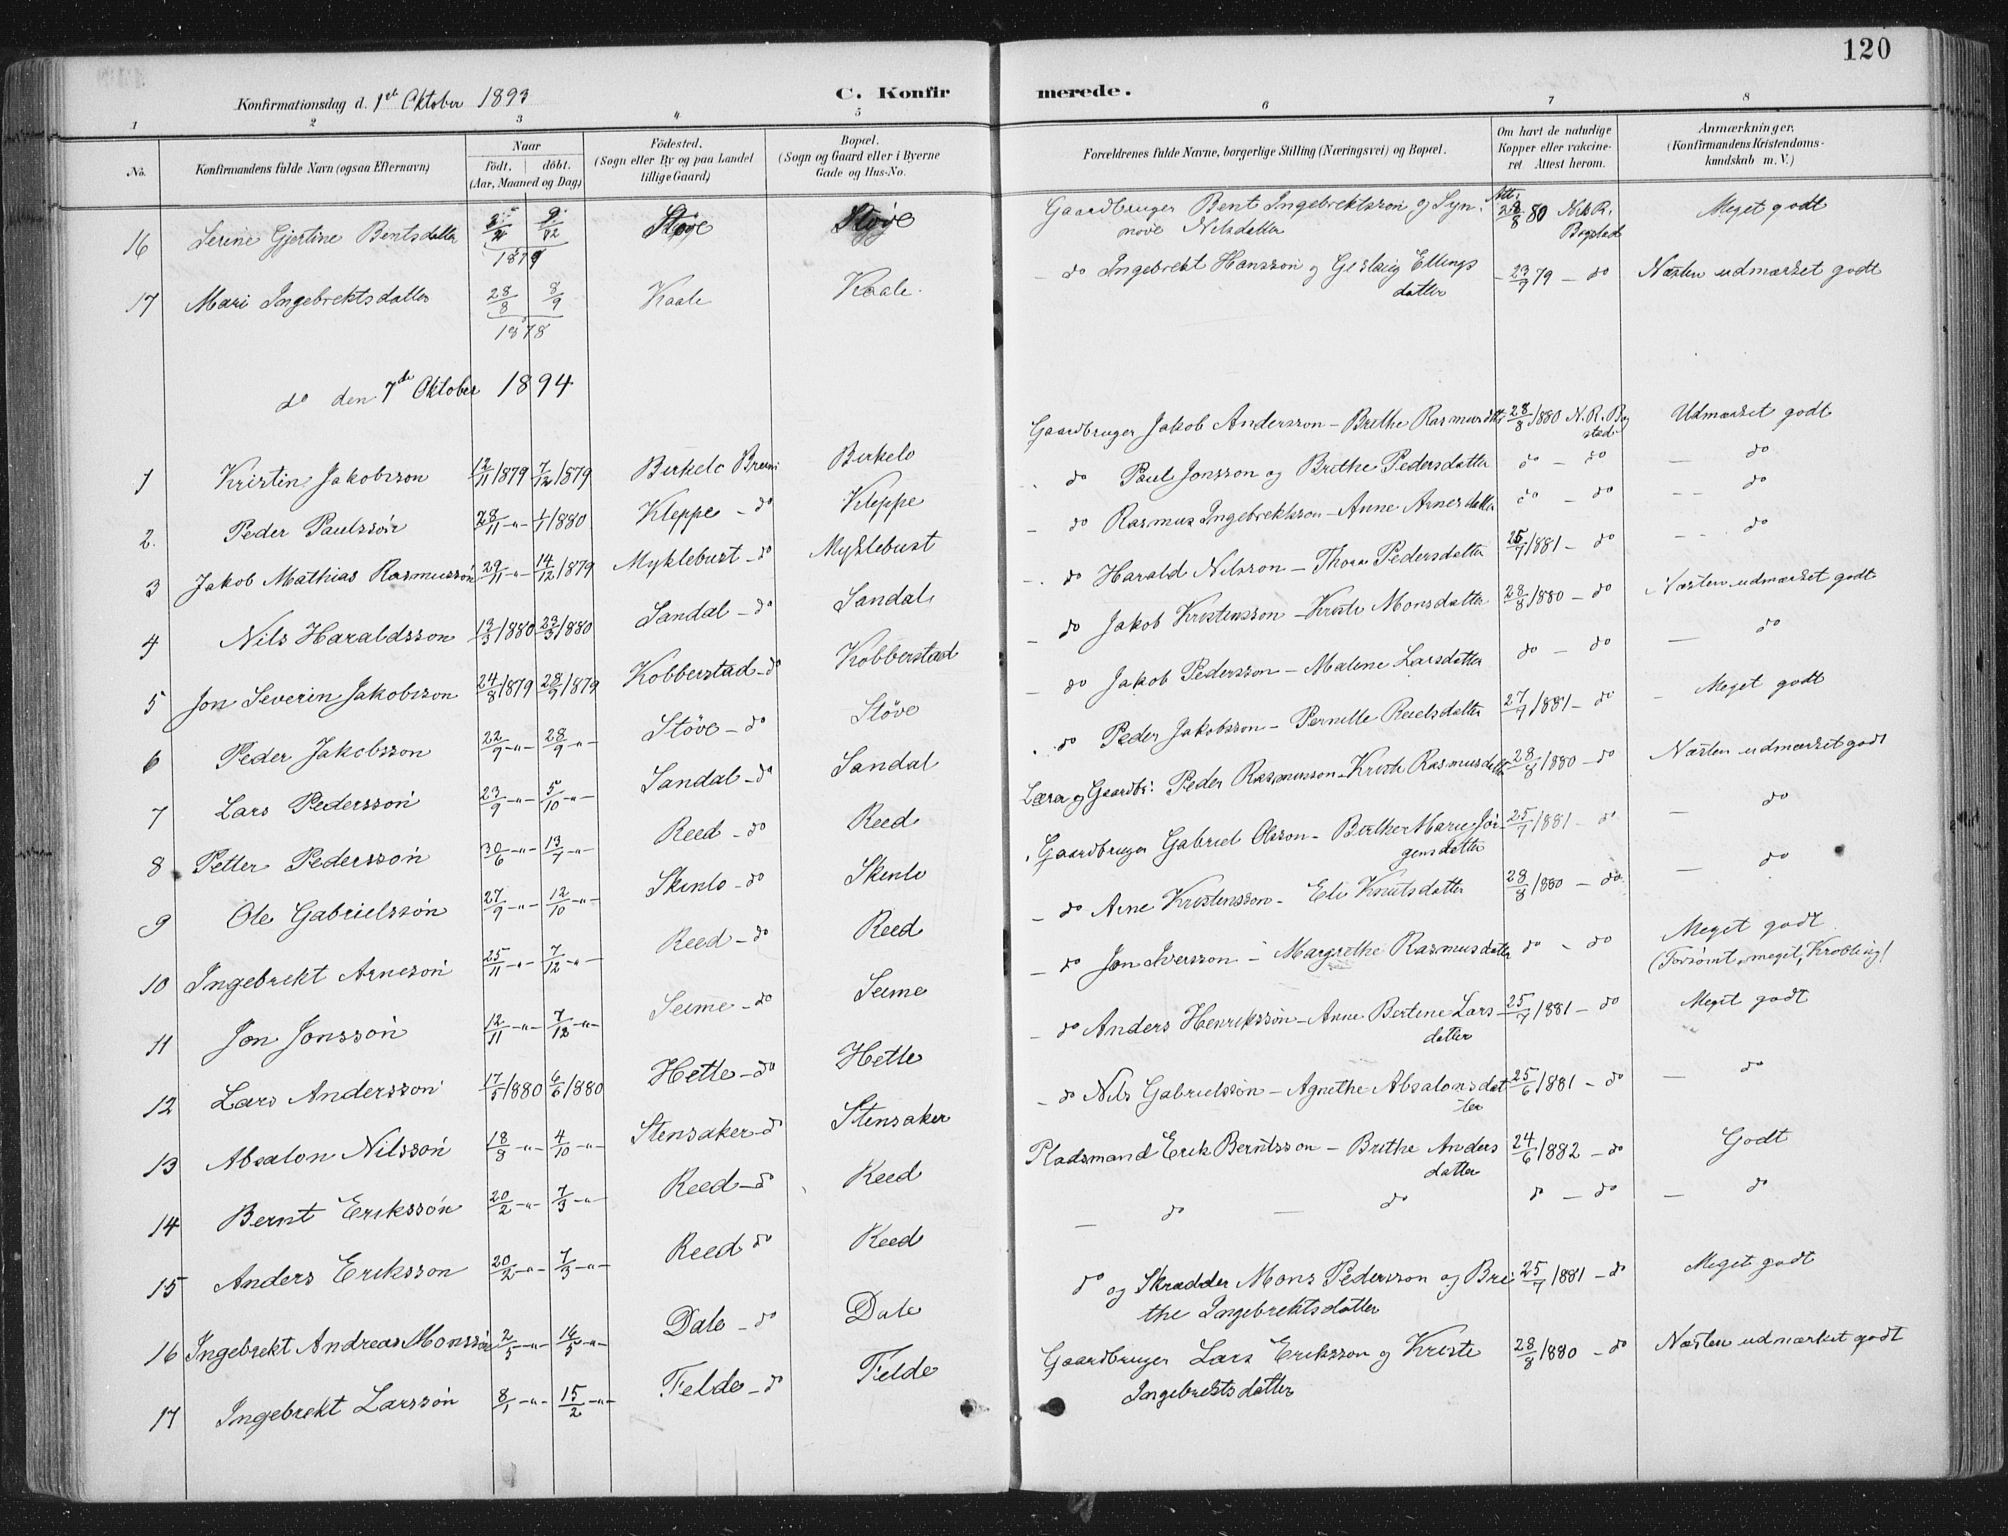 120
Konfirmationsdag d. 1ste Oktober 1893
C. Konfirmerede.
1 2 3 4 5 6 7 8
No. Konfirmandens fulde Navn (ogsaa Efternavn) Naar födt. döbt. (Aar, Maaned og Dag) Födested. (Sogn eller By og paa Landet tillige Gaard) Bopæl. (Sogn og Gaard eller i Byerne Gade og Hus-No. Forældrenes fulde Navne, borgerlige Stilling (Næringsvei) og Bopæl. Om havt de naturlige Kopper eller vakcineret. Attest herom. Anmærkninger. (Konfirmandens Kristendomskundskab m. V.)
16 Serine Gjertine Bentsdatter 1879 Støve Støve Gaardbruger Bent Ingebrektsson og Synnøve Nilsdatter Att: 28/8 80 Nils R. Bogstad Meget godt
17 Mari Ingebrektsdatter 28/8 8/9 1878 Kaale Kaale – do Ingebrekt Hansson og Gjeslaug Ellingsdatter – 23/9 79 – do Næsten udmærket godt
do den 7de Oktober 1894
1 Kristin Jakobsson 12/11 1879 7/12 1879 Birkelo Breim Birkelo Gaardbruger Jakob Andersson – Brithe Rasmusdtr 28/8 1880 N. R. Bogstad Udmærket godt
2. Peder Paulssön 28/11 -"- 1/1 1880 Kleppe – do Kleppe do Paul Jonsson og Brithe Pedersdatter do – do – do
3 Jakob Mathias Rasmussön 29/11 -"- 14/12 1879 Myklebust – do Myklebust – do Rasmus Ingebrektsson – Anne Arnesdatter do – do – – do
4 Nils Haraldsson 13/3 1880 23/3 1880 Sandal – do Sandal – do Harald Nilsson – Thora Pedersdatter 25/7 1881 – do – – do
5 Jon Severin Jakobsson 24/8 1879 28/9 1879 Kobberstad – do Kobberstad – do Jakob Kristensson – Kristi Monsdatter 28/8 1880 – do Næsten udmærket godt
6 Peder Jakobsson 22/9 -"- 28/9 -"- Støve – do Støve – do Jakob Pedersson – Malene Larsdatter do – do – do
7 Lars Pederssön 23/9 -"- 5/10 -"- Sandal – do Sandal do Peder Jakobsson – Pernille Reielsdatter 27/9 1881 – do – Meget godt
8 Petter Pederssön 30/6 -"- 13/7 -"- Reed – do Reed Lærer og Gaardbr: Peder Rasmusson – Kristi Rasmusdatter 28/8 1880 – do Næsten udmærket godt
9 Ole Gabrielssön 27/9 -"- 12/10 -"- Skinlo – do Skinlo Gaardbruger Gabriel Olsson – Birthe Marie Jørgensdatter 25/7 1881 – do – do
10 Ingebrekt Arnesön 25/11 -"- 7/12 -"- Reed – do Reed – do Arne Kristensson – Eli Knutsdatter 28/8 1880 – do – do
11 Jon Jonssön 12/11 -"- 7/12 -"- Seime – do Seime – do Jon Iversson – Margrethe Rasmusdatter do – do Meget godt (Forsømt meget, Krøbling)
12 Lars Andersson 17/5 1880 6/6 1880 Hette – do Hette – do Anders Henrikssön – Anne Bertine Larsdatter 25/7 1881 – do Meget godt
13 Absalon Nilssön 18/8 -"- 4/10 -"- Stensaker – do Stensaker – do Nils Gabrielssön – Agnethe Absalonsdatter 25/6 1881 – do – do
14 Bernt Erikssön 20/2 -"- 7/3 -"- Reed – do Reed Pladsmand Erik Berntsson – Brithe Andersdatter 24/6 1882 – do Godt
15 Anders Eriksson 20/2 -"- 7/3 -"- Reed do Reed – do – do do – do – do
16 Ingebrekt Andreas Monssön 2/5 -"- 16/5 -"- Dale – do Dale do og Skrædder Mons Pedersson og Brithe Ingebrektsdatter 25/7 1881 – do Meget godt
17 Ingebrekt Larssön 8/1 -"- 15/2 -"- Felde – do Felde Gaardbruger Lars Eriksson og Kristi Ingebrektsdatter 28/8 1880 – do Næsten udmærket godt